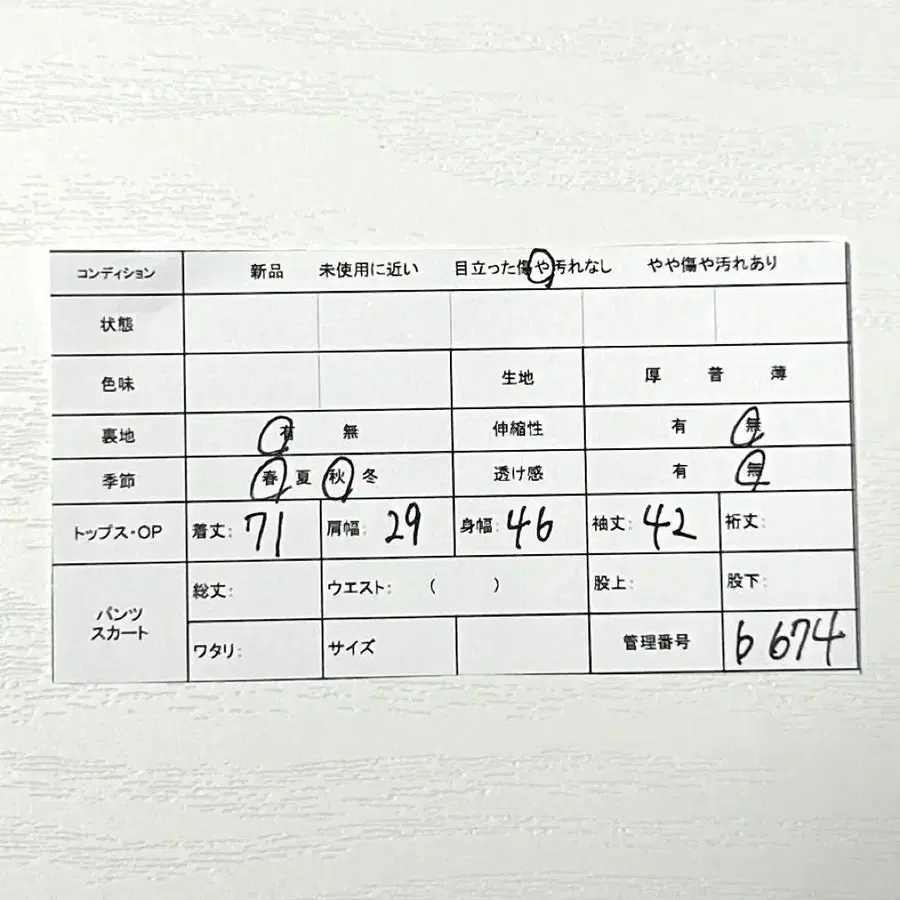 コンディション 新品 未使用に近い 目立った傷や汚れなし やや傷や汚れあり
状態
色味 生地 厚 普 薄
裏地 有 無 伸縮性 有 無
季節 春 夏 秋 冬 透け感 有 無
トップス・OP 着丈: 71 肩幅: 29 身幅: 46 袖丈: 42 裄丈:
パンツ
スカート
総丈: ウエスト: ( ) 股上: 股下:
ワタリ: サイズ 管理番号 b 674